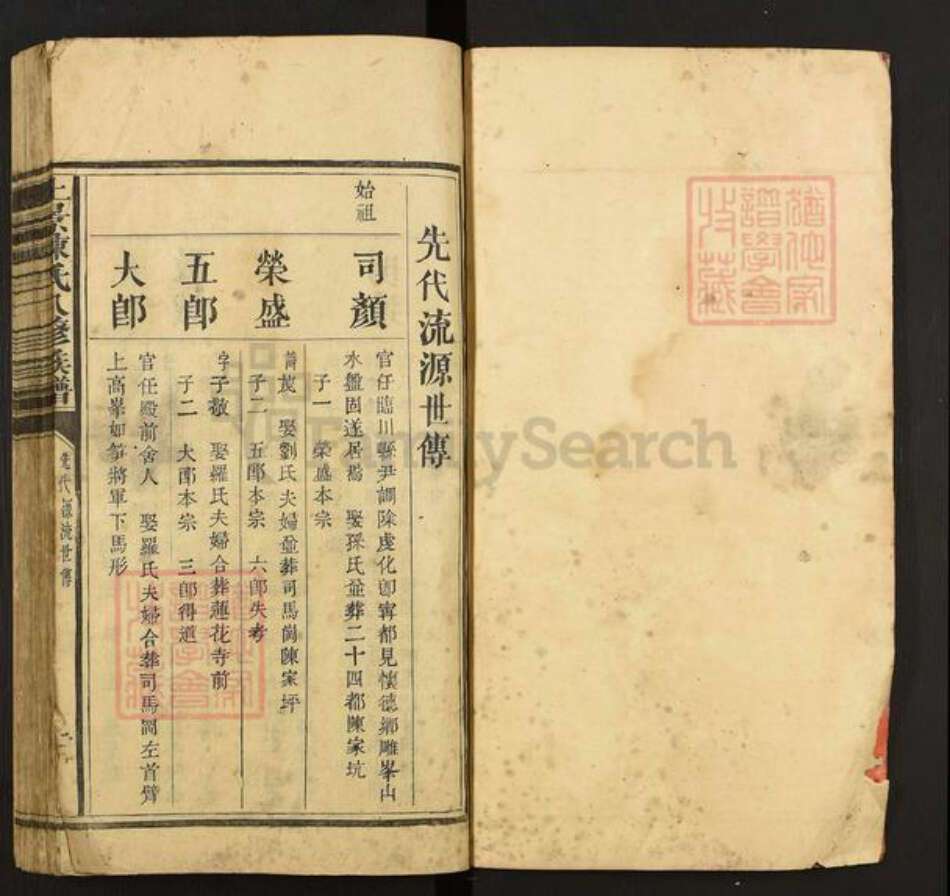 先代流源世傳
始祖
司顏
官任臨川縣尹調除虔化卽寧都見懷德鄉雕峯山
水盤固遂居焉 娶孫氏並葬二十四都陳家坑
子一 榮盛本宗
榮盛
娶劉氏夫婦並葬司馬崗陳家坪
子二 五郎本宗 六郎失考
五郎
字子敬 娶羅氏夫婦合葬蓮花寺前
子二 大郎本宗 三郎得道
大郎
官任殿前舍人 娶羅氏夫婦合葬司馬崗左首臂
上高峯如笋將軍下馬形
上景陳氏八修族譜
先代源流世傳
猶他家
譜學會
收藏
FamilySearch